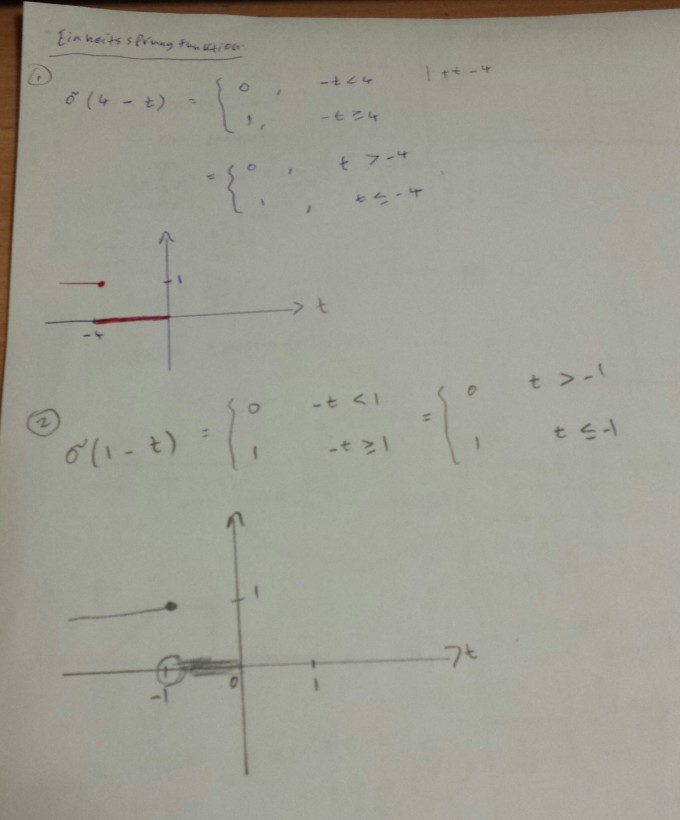 Einheitssprungfunktion
① σ(4 - t) = { 0 , -t < 4 | +t -4
1, -t ≥ 4
= { 0 , t > -4
1 , t ≤ -4
1
-4 t
② σ(1 - t) = { 0 -t < 1 = { 0 t > -1
1 -t ≥ 1 1 t ≤ -1
1
-1 0 1 t